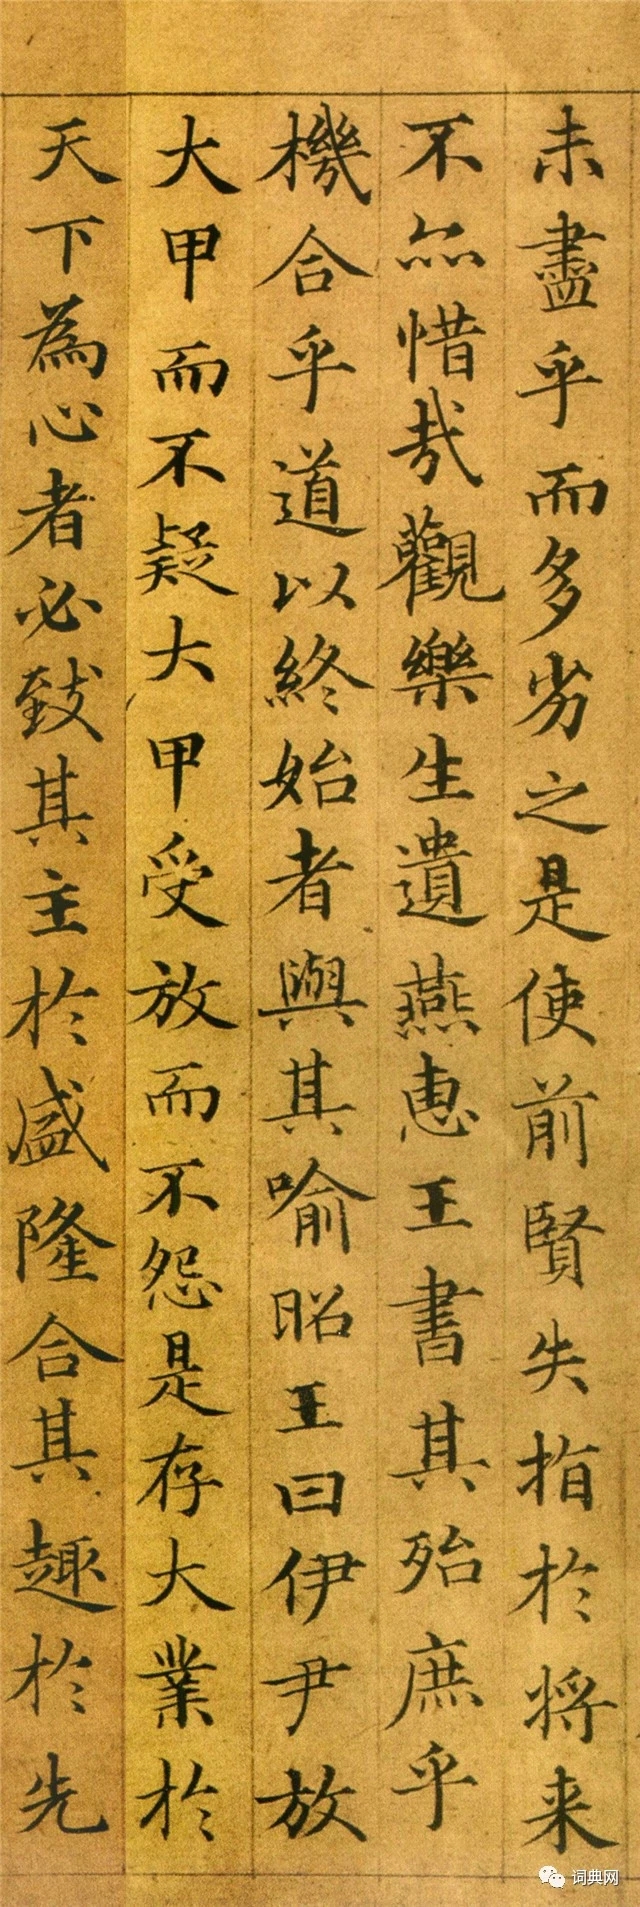 未盡乎而多劣之是使前賢失指於将来
不亦惜哉觀樂生遺燕惠王書其殆庶乎
機合乎道以終始者與其喻昭王曰伊尹放
大甲而不疑大甲受放而不怨是存大業於
天下為心者必致其主於盛隆合其趣於先
词典网